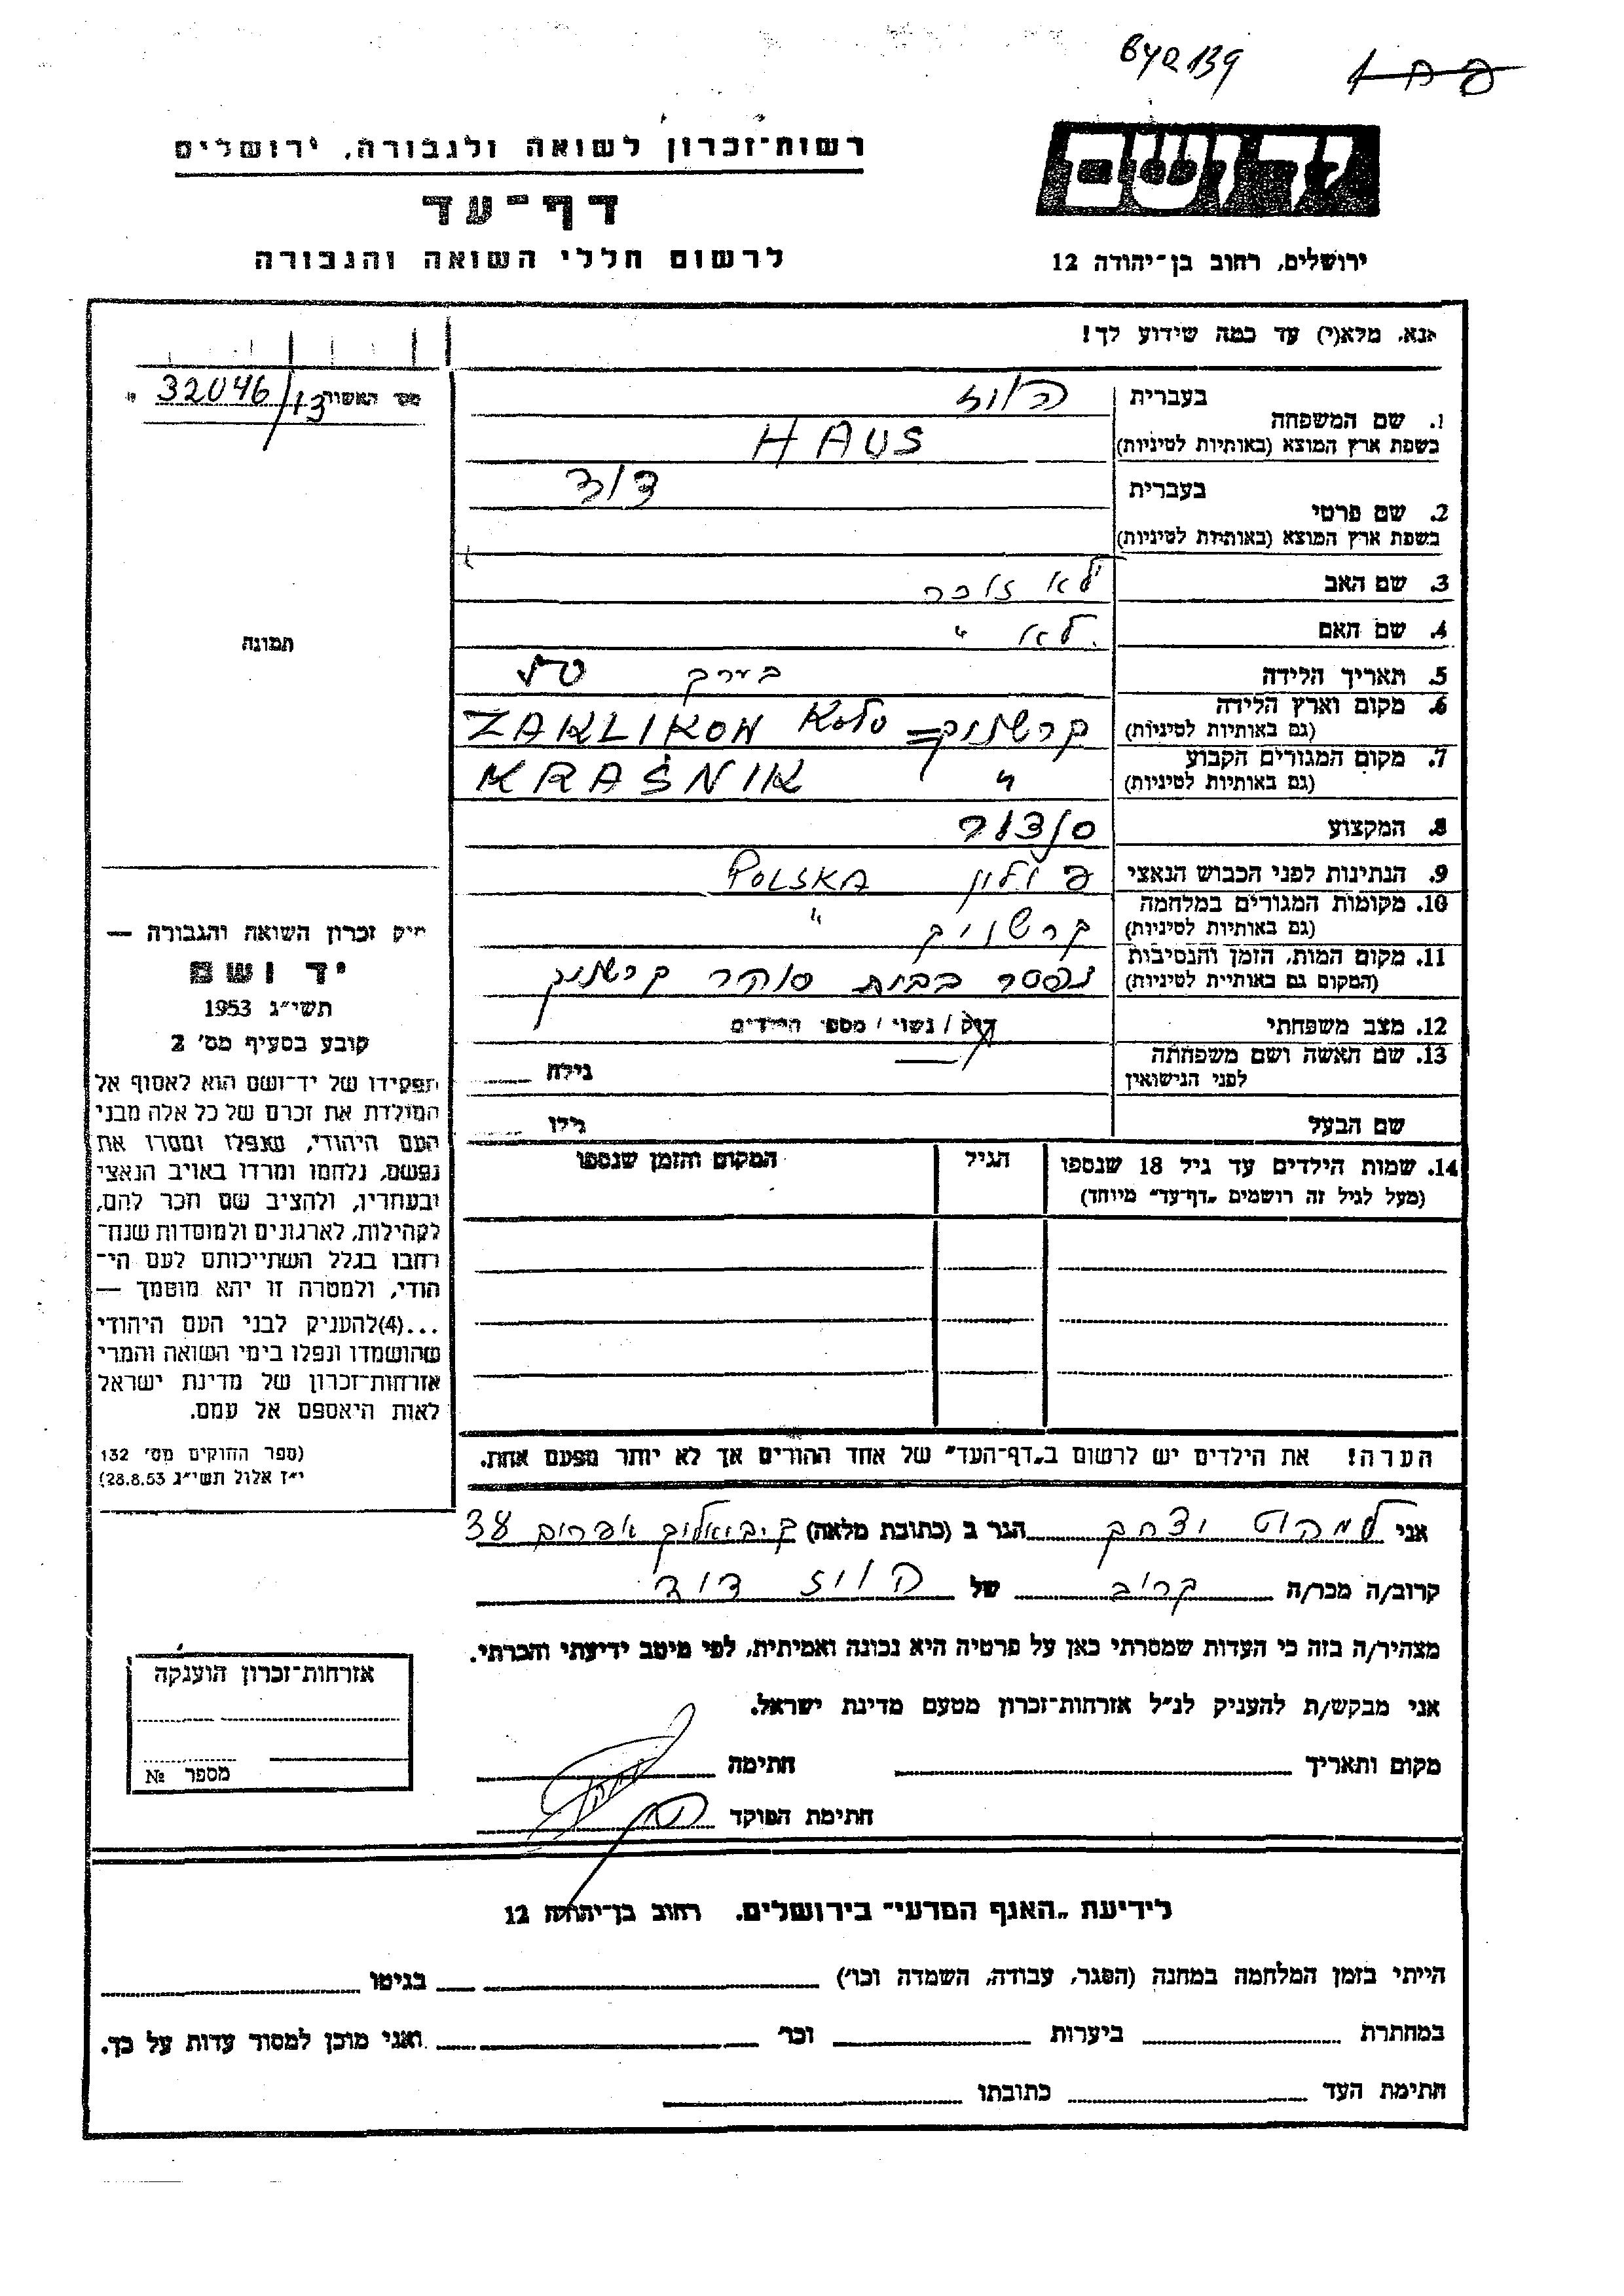 רשות־זכרון לשואה ולגבורה, ירושלים
דף־עד
לרשום חללי השואה והגבורה
ידושם
ירושלים, רחוב בן־יהודה 12
אנא, מלא(י) עד כמה שידוע לך!
מס׳ האשור 32046/13
1. שם המשפחה
בעברית
הוז
בשפת ארץ המוצא (באותיות לטיניות) HAUS
2. שם פרטי
בעברית
דוד
בשפת ארץ המוצא (באותיות לטיניות)
3. שם האב לא זוכר
4. שם האם לא "
תמונה
5. תאריך הלידה בערך
6. מקום וארץ הלידה
(גם באותיות לטיניות)
קרשניק = ZAKLIKOM KOLO
7. מקום המגורים הקבוע
(גם באותיות לטיניות)
" KRAŚNIK
8. המקצוע סנדלר
9. הנתינות לפני הכבוש הנאצי פולין POLSKA
10. מקומות המגורים במלחמה
(גם באותיות לטיניות)
קרשניק "
11. מקום המות, הזמן והנסיבות
(המקום גם באותיות לטיניות)
נפטר בבית סוהר קרשניק
12. מצב משפחתי רוק / נשוי / מספר הילדים
13. שם האשה ושם משפחתה
לפני הנישואין
גילה
שם הבעל גילו
14. שמות הילדים עד גיל 18 שנספו
(מעל לגיל זה רושמים „דף־עד״ מיוחד)
הגיל
המקום והזמן שנספו
חוק זכרון השואה והגבורה —
יד ושם
תשי״ג 1953
קובע בסעיף מס׳ 2
תפקידו של יד־ושם הוא לאסוף אל
המולדת את זכרם של כל אלה מבני
העם היהודי, שנפלו ומסרו את
נפשם, נלחמו ומרדו באויב הנאצי
ובעוזריו, ולהציב שם וזכר להם,
לקהילות, לארגונים ולמוסדות שנח־
רבו בגלל השתייכותם לעם הי־
הודי, ולמטרה זו יהא מוסמך —
...(4) להעניק לבני העם היהודי
שהושמדו ונפלו בימי השואה והמרי
אזרחות־זכרון של מדינת ישראל
לאות היאספם אל עמם.
(ספר החוקים מס׳ 132
י״ז אלול תשי״ג 28.8.53)
הערה! את הילדים יש לרשום ב„דף־העד״ של אחד ההורים אך לא יותר מפעם אחת.
אני יצחק הגר ב (כתובת מלאה) ק. ביאליק אפרים 34
קרוב/ה מכר/ה קרוב של הוז דוד
מצהיר/ה בזה כי העדות שמסרתי כאן על פרטיה היא נכונה ואמיתית, לפי מיטב ידיעתי והכרתי.
אני מבקש/ת להעניק לנ״ל אזרחות־זכרון מטעם מדינת ישראל.
מקום ותאריך חתימה
חתימת הפוקד
אזרחות־זכרון הוענקה
מספר №
לידיעת „האגף המדעי״ בירושלים. רחוב בן־יהודה 12
הייתי בזמן המלחמה במחנה (הסגר, עבודה, השמדה וכו׳) בגיטו
במחתרת ביערות וכו׳ ואני מוכן למסור עדות על כך.
חתימת העד כתובתו